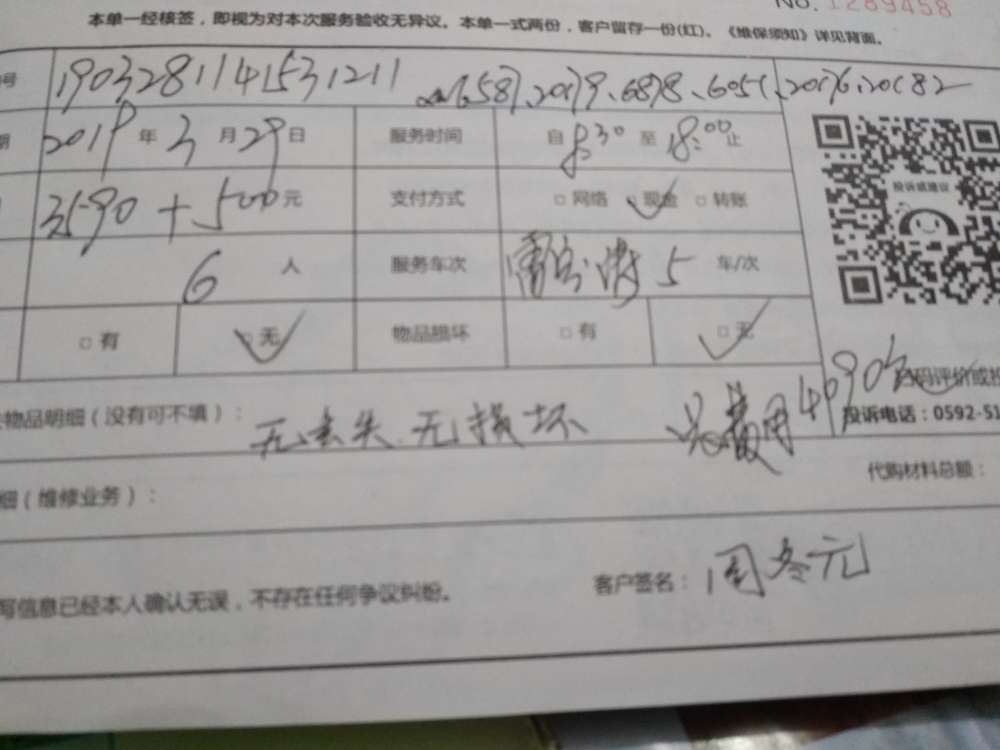 NO. 1289458
本单一经核签，即视为对本次服务验收无异议。本单一式两份，客户留存一份(红)。《维保须知》详见背面。
号 1903281141531211 6587、20179、6878、6051、20176、20182
期 2019年3月29日 服务时间 自8:30至18:00止
3590+500元 支付方式 □网络 □现金 □转账
投诉或建议
6人 服务车次 5车/次
□有 □无 物品损坏 □有 □无
扫码评价或投
物品明细（没有可不填）： 无丢失 无损坏 总费用4090元
投诉电话：0592-51
细（维修业务）： 代购材料总额：
写信息已经本人确认无误，不存在任何争议纠纷。 客户签名：周冬元